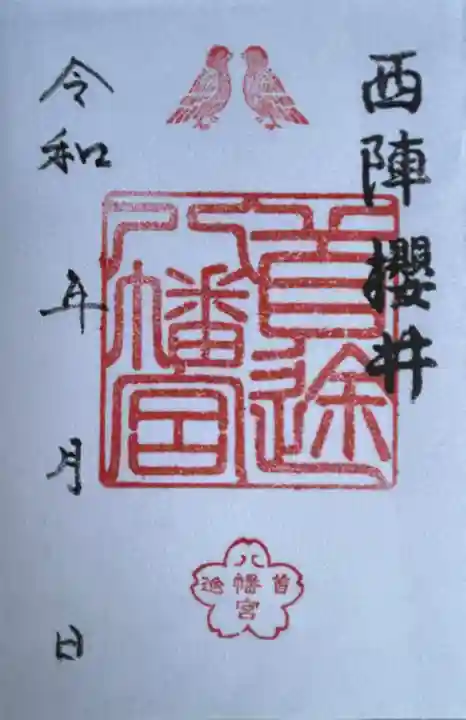 西陣櫻井
首途
八幡宮
令和 年 月 日
首途八幡宮